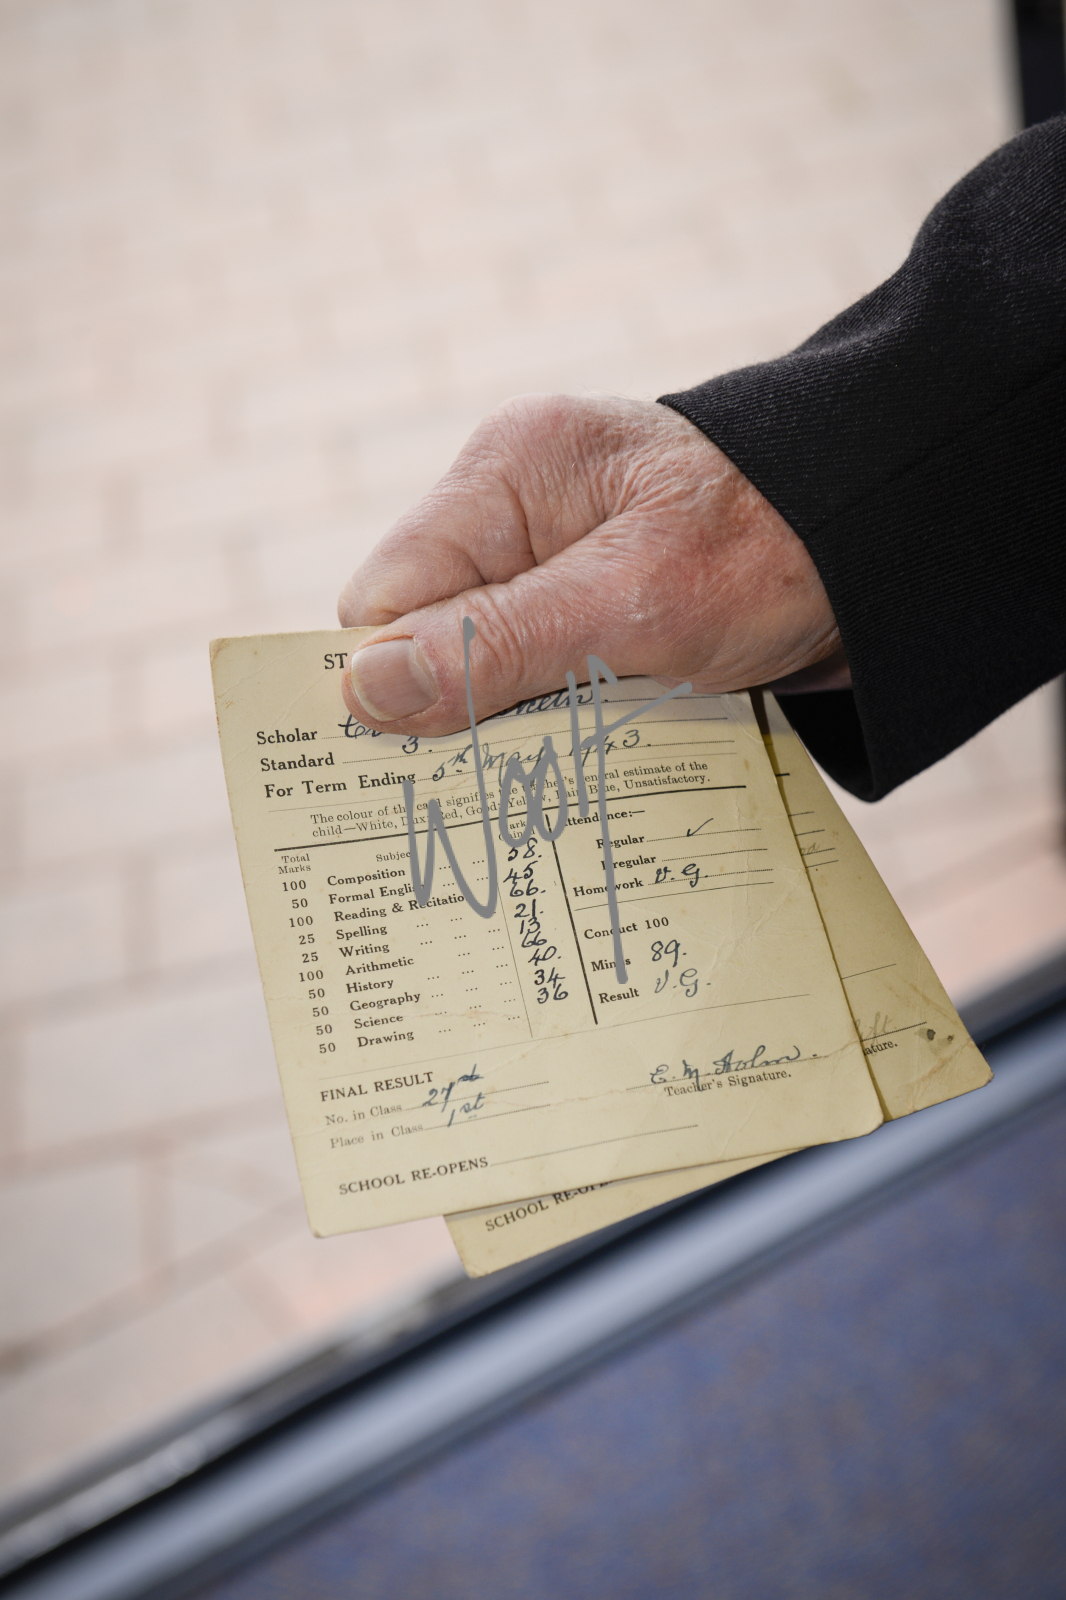 ST
Scholar
Standard 3.
For Term Ending 5th May 1943.
The colour of the card signifies the teacher's general estimate of the
child—White, Dux; Red, Good; Yellow, Fair; Blue, Unsatisfactory.
Total Marks Subject Marks
100 Composition ... ... 58.
50 Formal English ... ... 45
100 Reading & Recitation 66.
25 Spelling ... ... ... 21.
25 Writing ... ... ... 13
100 Arithmetic ... ... 66
50 History ... ... ... 40.
50 Geography ... ... ... 34
50 Science ... ... ... 36
50 Drawing ... ... ...
Attendance:—
Regular ✓
Irregular
Homework V.G.
Conduct 100
Minus 89.
Result V.G.
FINAL RESULT
No. in Class 27
Place in Class 1st
E. M. Holm.
Teacher's Signature.
SCHOOL RE-OPENS
ature.
SCHOOL RE-OPE